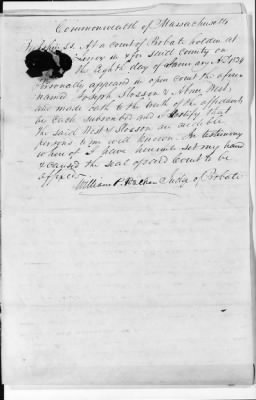 Commonwealth of Massachusetts
ss. At a Court of Probate holden at
Lenox in & for said County on
the eighth day of January A.D.
Personally appeared in open Court the afore
named Joseph Slosson & Abner West,
and made oath to the truth of the affidavits
by each subscribed and I certify that
the said West & Slosson are credible
persons to me well known. In testimony
whereof I have hereunto set my hand
& caused the seal of said Court to be
affixed
William P. Walker Judge of Probate